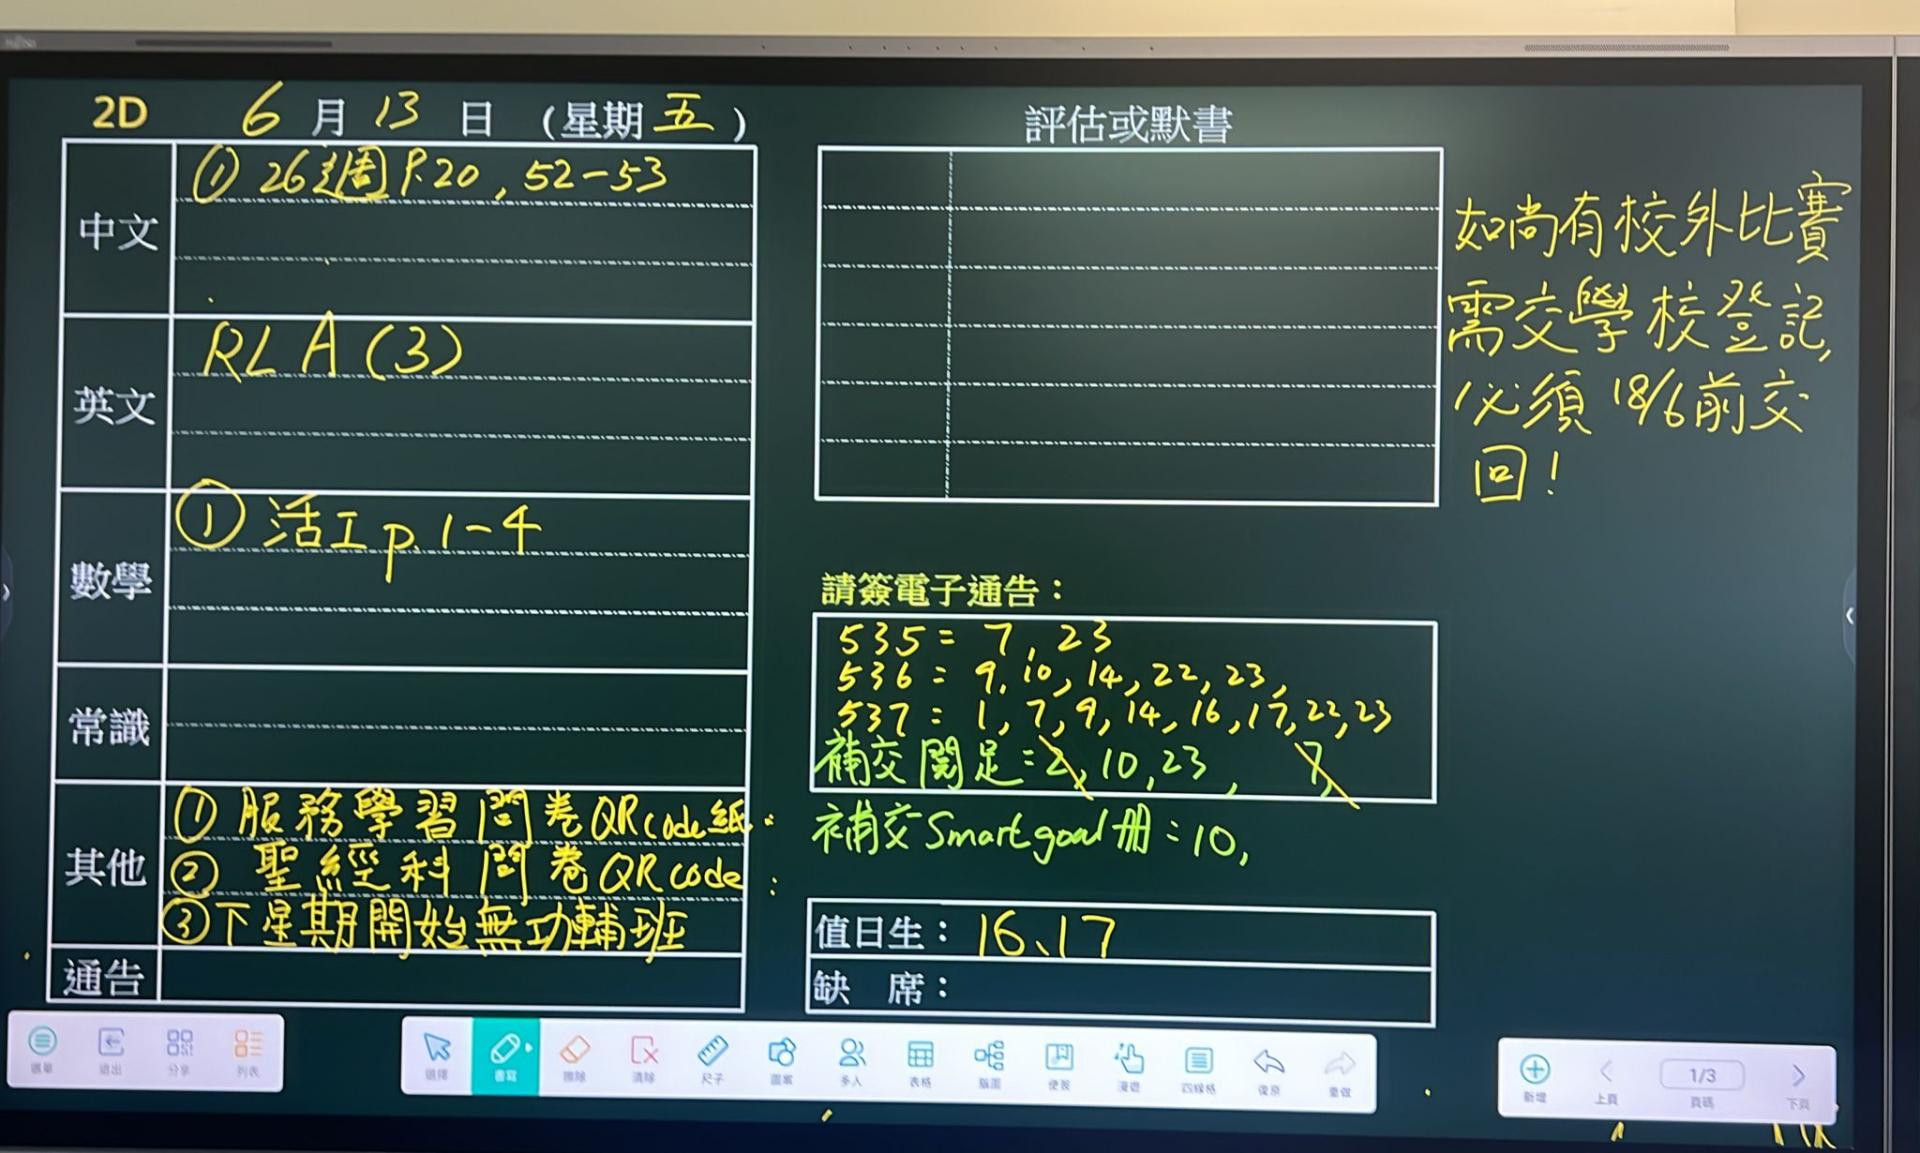 2D 6月13日（星期五）
中文
① 26週 P.20, 52-53
英文
RLA(3)
數學
① 活工 p.1-4
常識
其他
① 服務學習問卷QR code紙
② 聖經科問卷QR code
③ 下星期開始無功輔班
通告
評估或默書
如尚有校外比賽
需交學校登記,
必須 18/6前交
回！
請簽電子通告：
535 = 7, 23
536 = 9, 10, 14, 22, 23,
537 : 1, 7, 9, 14, 16, 17, 22, 23
補交閱足: 2, 10, 23, 7,
補交Smart goal冊：10,
值日生：16、17
缺　席：
選單 退出 分享 列表
選擇 書寫 擦除 清除 尺子 圖案 多人 表格 腦圖 便簽 漫遊 四線格 復原 重做
新增 上頁 1/3 頁碼 下頁